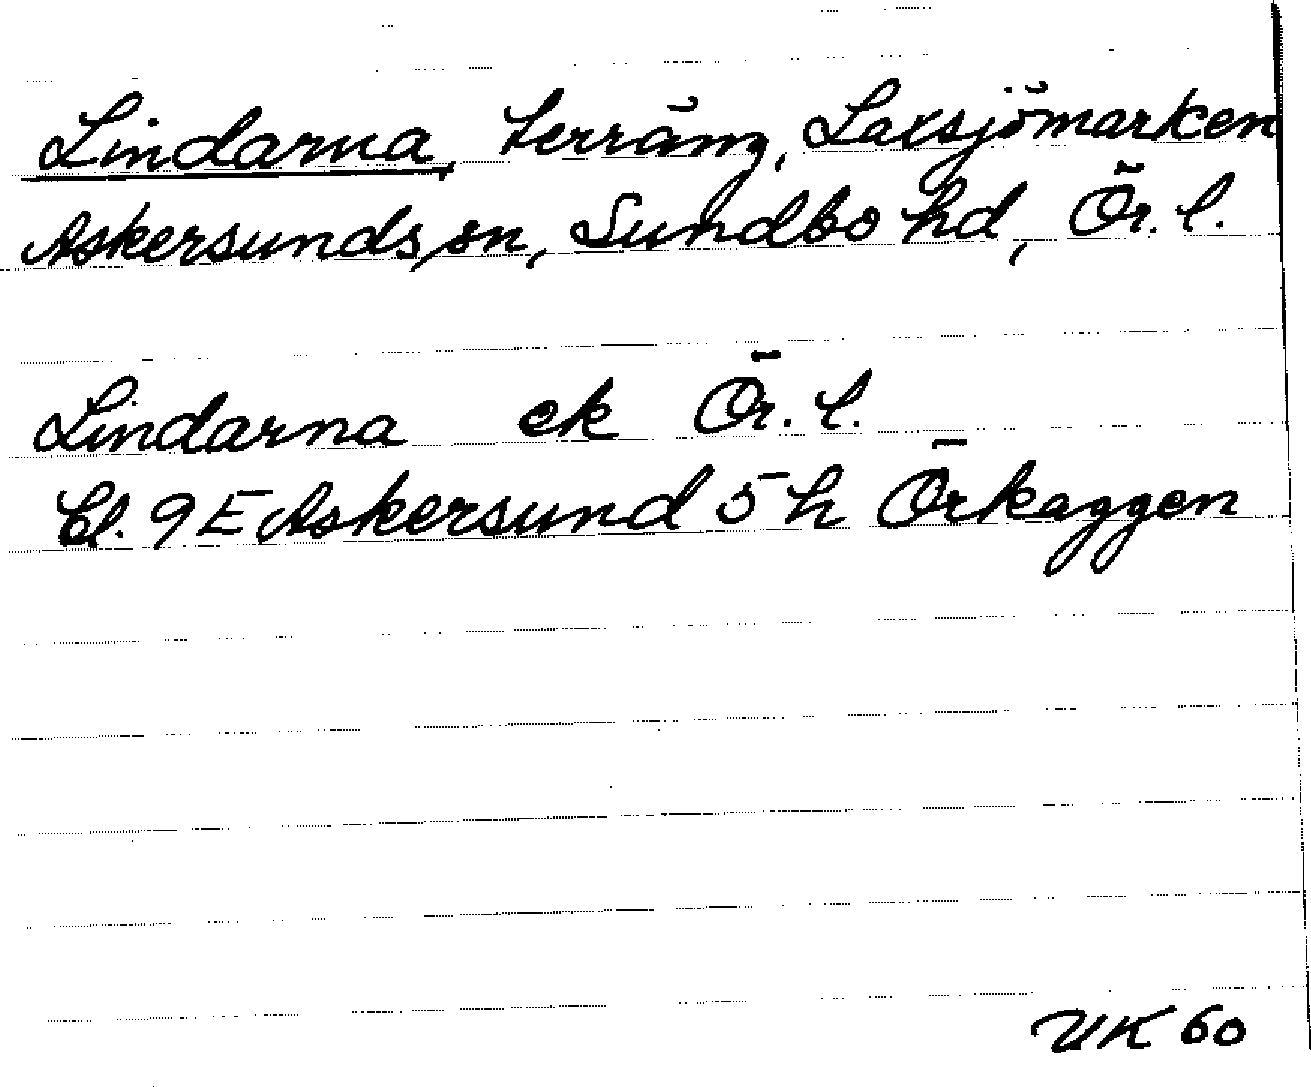 Lindarna, terräng, Laxsjömarken
Askersunds sn, Sundbo hd, Ör. l.
Lindarna ek Ör. l.
Bl. 9 E Askersund 5 h Örkaggen
UK 60